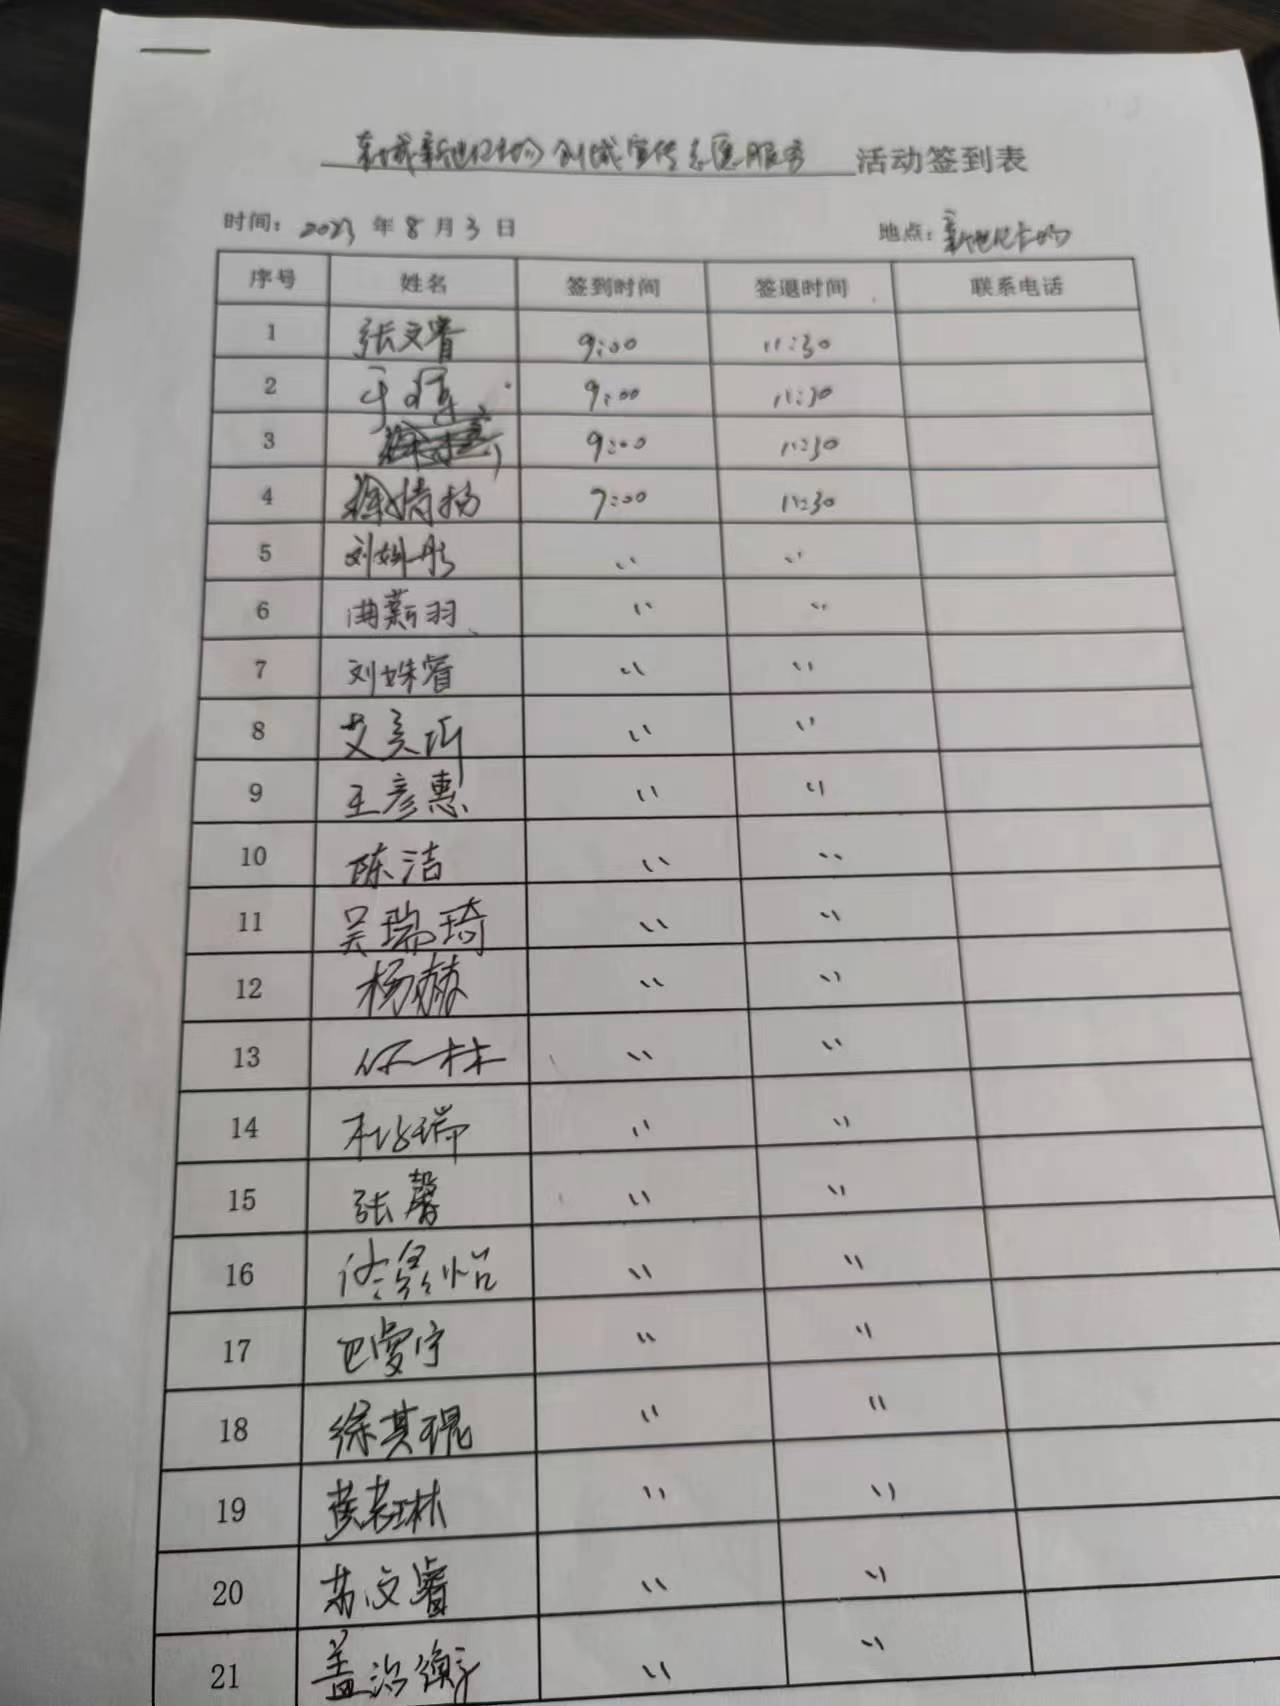 创城宣传志愿服务 活动签到表
时间：2023 年 8 月 3 日 地点：新世纪广场
序号 姓名 签到时间 签退时间 联系电话
1 张文睿 9:00 11:30
2 于 9:00 11:30
3 9:00 11:30
4 徐婧扬 9:00 11:30
5 刘姝彤 〃 〃
6 曲薪羽 〃 〃
7 刘姝睿 〃 〃
8 艾美 〃 〃
9 王彦惠 〃 〃
10 陈洁 〃 〃
11 吴瑞琦 〃 〃
12 杨赫 〃 〃
13 任一林 〃 〃
14 瑞 〃 〃
15 张馨 〃 〃
16 怡 〃 〃
17 巴雯宇 〃 〃
18 徐其琨 〃 〃
19 黄若琳 〃 〃
20 苏文睿 〃 〃
21 盖 〃 〃